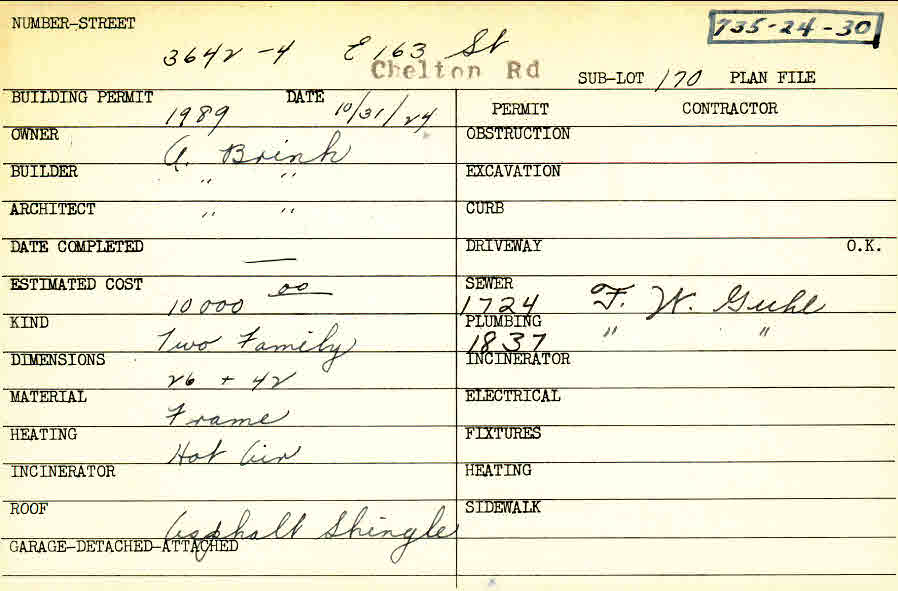 NUMBER-STREET 3642-4 E 163 St 735-24-30
Chelton Rd SUB-LOT 170 PLAN FILE
BUILDING PERMIT 1989 DATE 10/31/24 PERMIT CONTRACTOR
OWNER A. Brink OBSTRUCTION
BUILDER " " EXCAVATION
ARCHITECT " " CURB
DATE COMPLETED — DRIVEWAY O.K.
ESTIMATED COST 10000 00 SEWER 1724 F. W. Guhl
KIND Two Family PLUMBING 1837 " "
DIMENSIONS 26 + 42 INCINERATOR
MATERIAL Frame ELECTRICAL
HEATING Hot Air FIXTURES
INCINERATOR HEATING
ROOF Asphalt Shingle SIDEWALK
GARAGE-DETACHED-ATTACHED